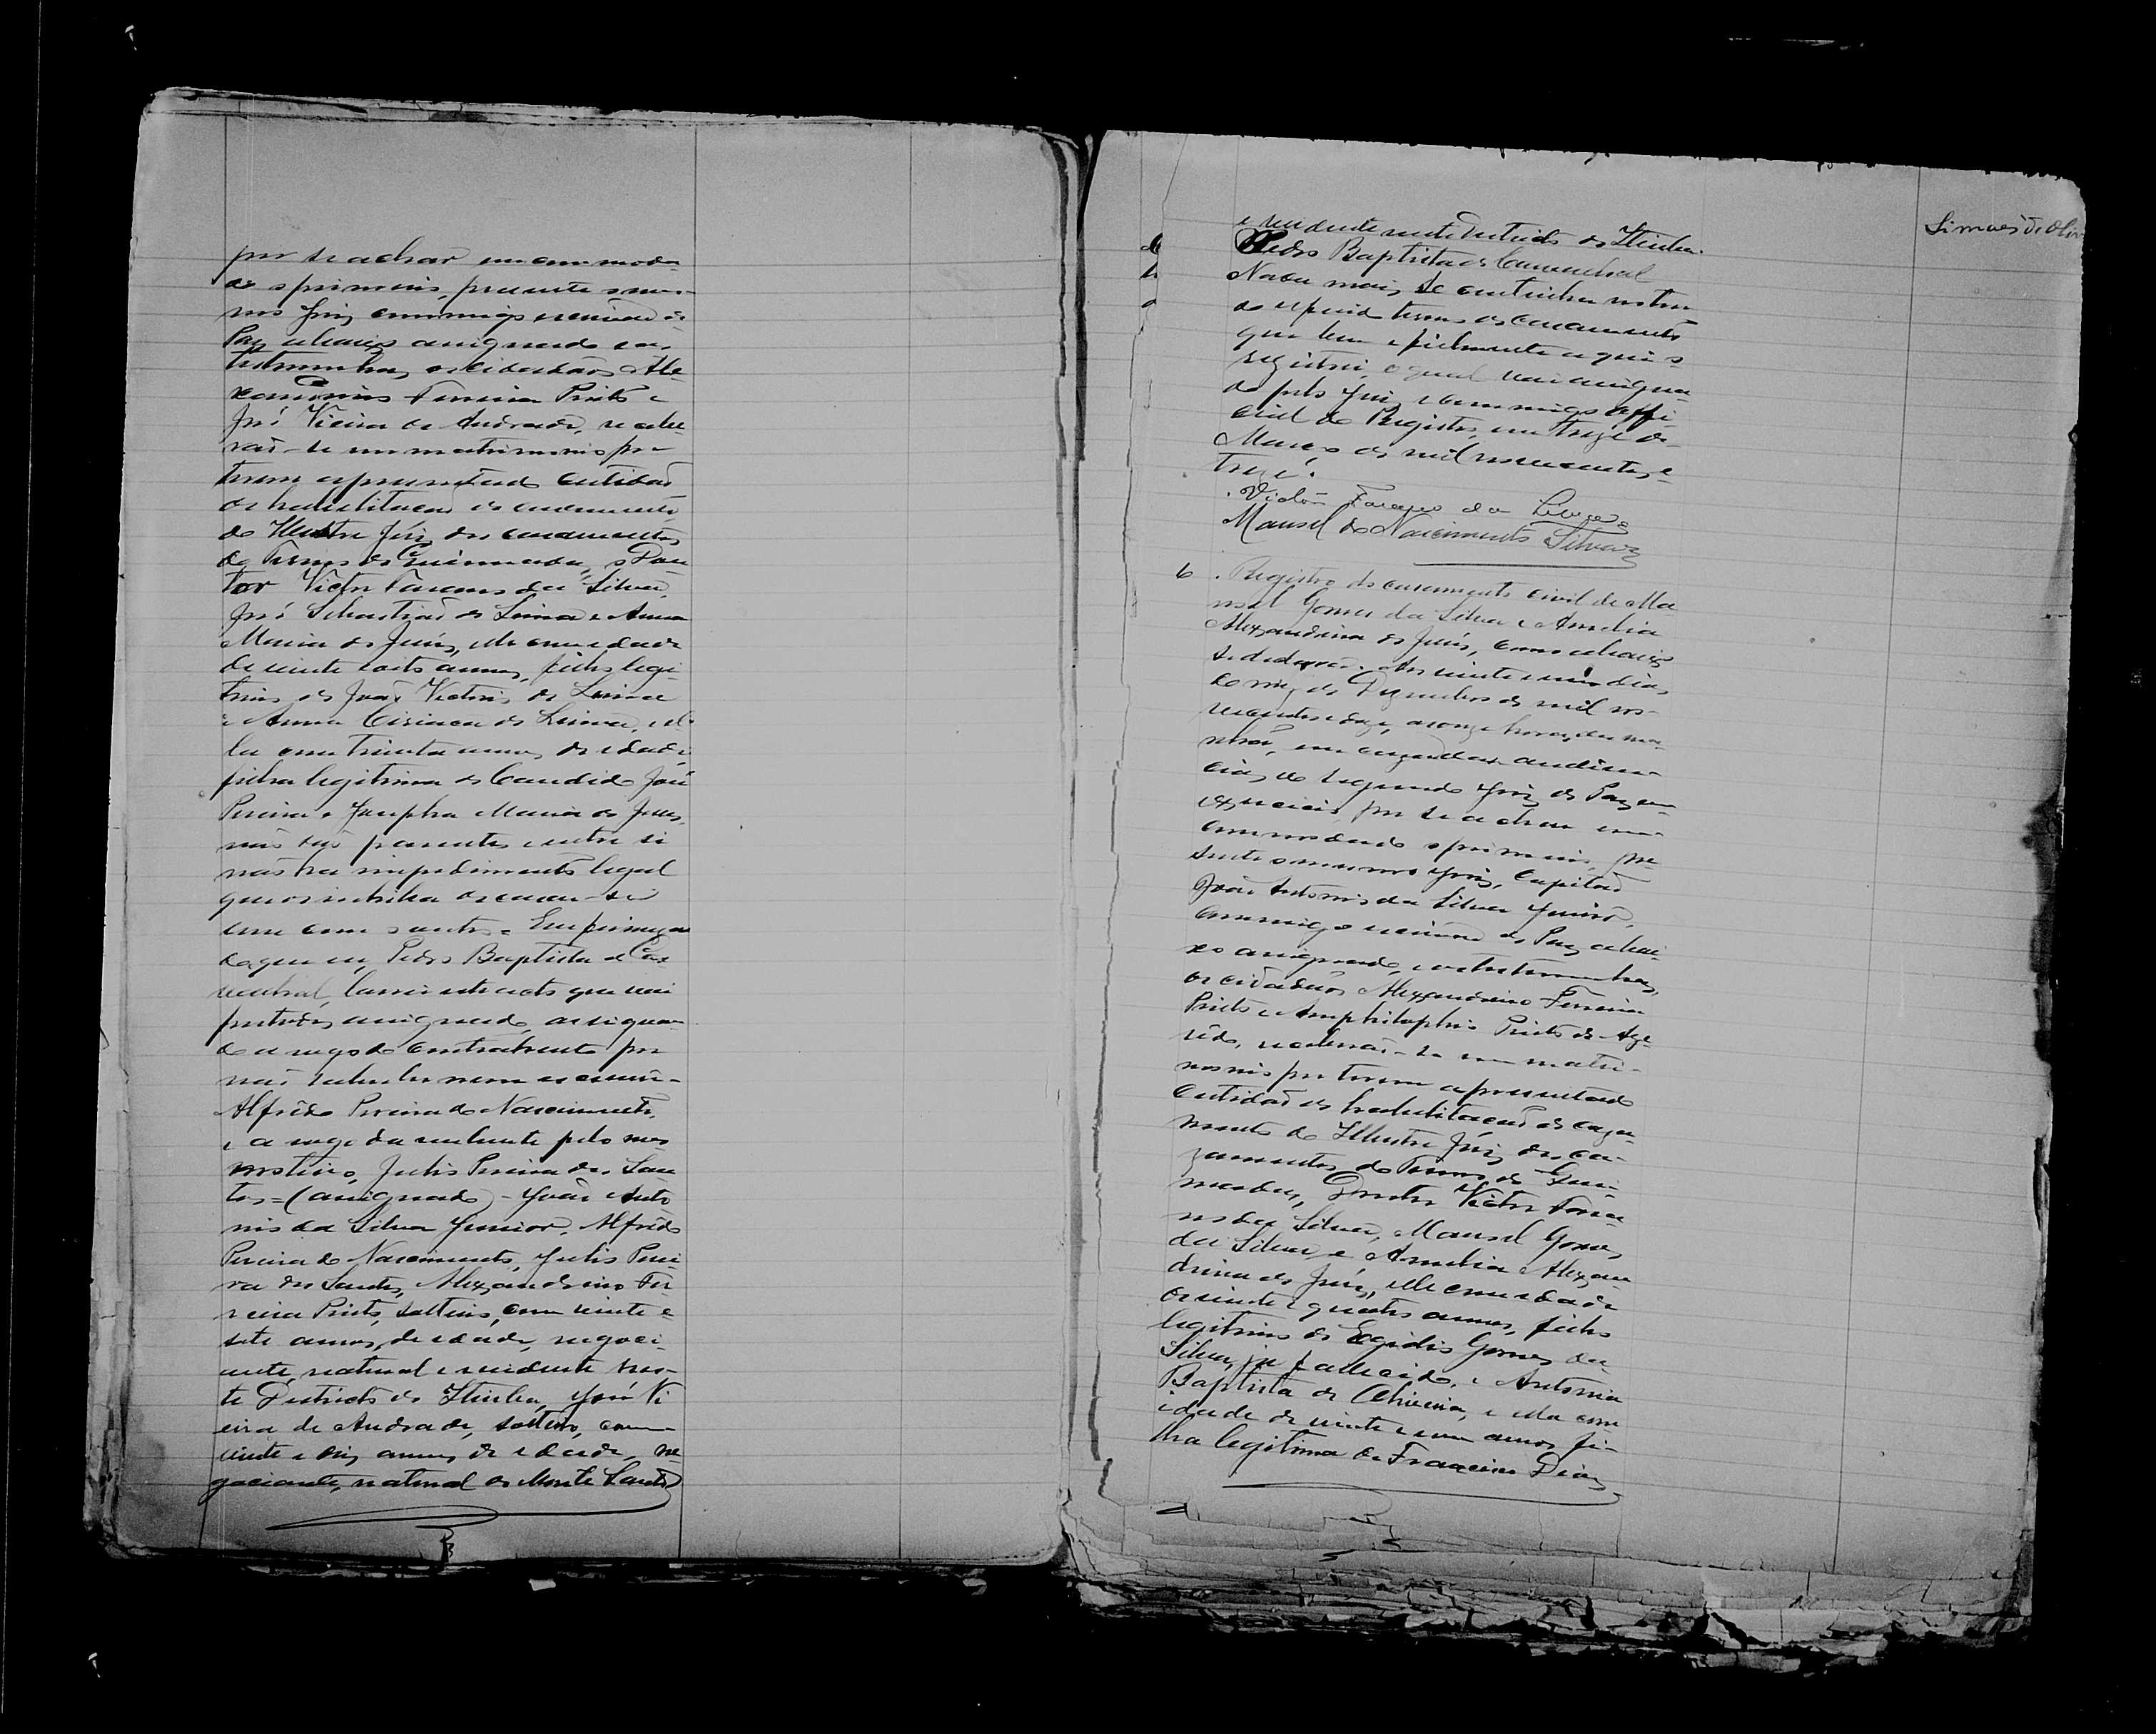 por se achar encommoda-
do o primeiro, presente o mes-
mo Juiz commigo escrivão de
Paz abaixo assignado e as
testemunhas, os cidadãos Ale-
xandrino Ferreira Pinto e
José Vieira de Andrade, recebe-
rão-se em matrimonio por
terem apresentado certidão
de habilitação de casamento
do Illustre Juiz dos casamentos
do Termo de Queimadas, o Dou-
tor Victor Favano da Silva,
José Sebastião de Lima e Anna
Maria de Jesús, elle com edade
de vinte e oito annos, filho legi-
timo de João Victorio de Lima
e Anna Ciriaca de Lima, el-
la com trinta annos de edade,
filha legitima de Candido José
Pereira e Josepha Maria de Jesus,
não são parentes e entre si
não ha impedimento legal
que os inhiba de casar-se
um com o outro. Em firmeza
do que eu, Pedro Baptista de Car-
valhal, lavrei este acto que vai
por todos assignado, assignan-
do a rogo do contrahente por
não saber ler nem escrever-
Alfrêdo Pereira do Nascimento,
e a rogo da nubente pelo mes
motivo, Julio Pereira dos San-
tos = (assignado) - João Anto-
nio da Silva Junior, Alfrêdo
Pereira do Nascimento, Julio Perei-
ra dos Santos, Alexandrino Fer-
reira Pinto, solteiro, com vinte e
sete annos de edade, negoci-
ante, natural e residente nes-
te Districto de Itiuba, José Vi-
eira de Andrade, solteiro, com
vinte e seis annos de edade, ne-
gociante, natural de Monte Santo
Simões de Oliv
e residente neste Districto de Itiuba.
Pedro Baptista de Carvalhal
Nada mais se continha
do referido termo de casamento
que bem e fielmente aqui o
registrei, o qual vai assigna-
do pelo Juiz e commigo offi-
cial do Registro, em treze de
Março de mil novecentos e
treze.
Victor da Silva
Manoel do Nascimento Silva
6. Registro do casamento civil de Ma
noel Gomes da Silva e Amelia
Alexandrina de Jesús, como abaixo
se declara. Aos vinte e um dias
do mez de Dezembro de mil no-
vecentos e doze, as onze horas da ma-
nhã, em caza das audien-
cias do segundo Juiz de Paz em
exercicio, por se achar en-
commodado o primeiro, pre
sente o mesmo Juiz, Capitão
João Antonio da Silva Junior,
commigo escrivão de Paz abai-
xo assignado, e as testemunhas,
os cidadãos Alexandrino Ferreira
Pinto e Amphilophio Pinto de Aze-
vêdo, receberão-se em matri-
monio por terem apresentado
certidão de habilitação de caza-
mento do Illustre Juiz dos ca-
zamentos do Termo de Quei-
madas, Doutor Victor Fava-
no da Silva, Manoel Gomes
da Silva e Amelia Alexan-
drina de Jesús, elle com edade
de vinte e quatro annos, filho
legitimo de Egidio Gomes da
Silva, ja fallecido, e Antonia
Baptista de Oliveira, e ella com
edade de vinte e um annos, fi-
lha legitima de Francisco Dias